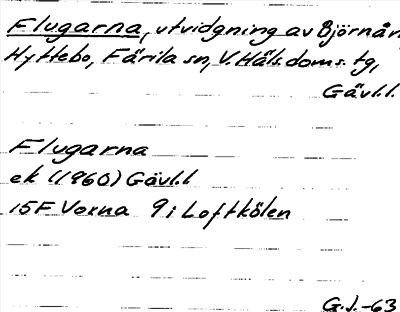 Flugarna, utvidgning av Björnån
Hyttebo, Färila sn, V. Häls. doms. tg,
Gävl.l.
Flugarna
ek (1960) Gävl.l
15F Voxna 9i Loftkölen
G.J.-63